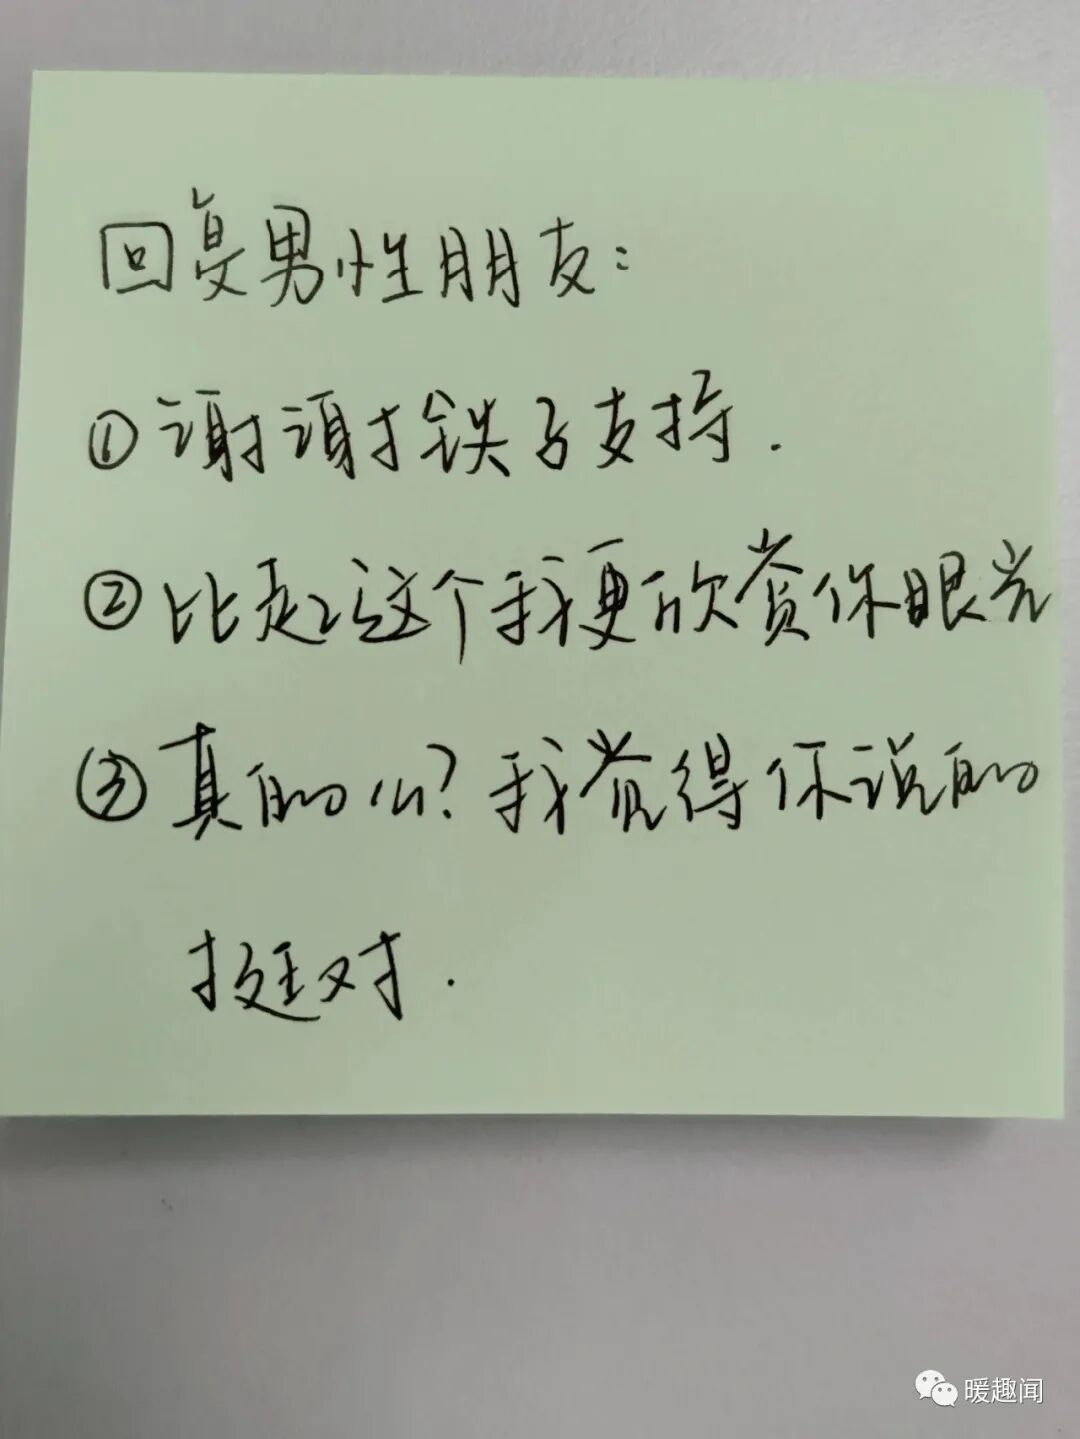 回复男性朋友:
①谢谢铁子支持.
②比起这个我更欣赏你眼光
③真的心?我觉得你说的
挺对.
暖趣闻